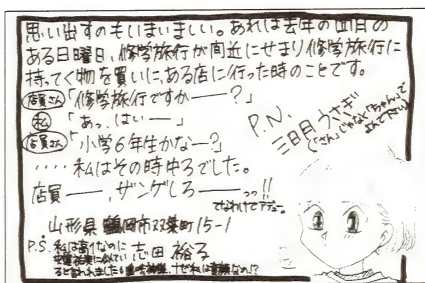 思い出すのもいまいましい。あれは去年の四月の
ある日曜日、修学旅行が間近にせまり修学旅行に
持ってく物を買いに、ある店に行った時のことです。
店員さん「修学旅行ですか——?」
私「あっ、はい——」
店員さん「小学6年生かな—?」
‥‥私はその時中3でした。
店員——、ザンゲしろ——っっ!!
でなわけでアデュー。
P.N.
三日月うさぎ
(「さん」じゃなく「ちゃん」で
よんで下さい)
山形県鶴岡市双葉町15-1
志田 裕子
P.S. 私は高1なのに
ると言われました